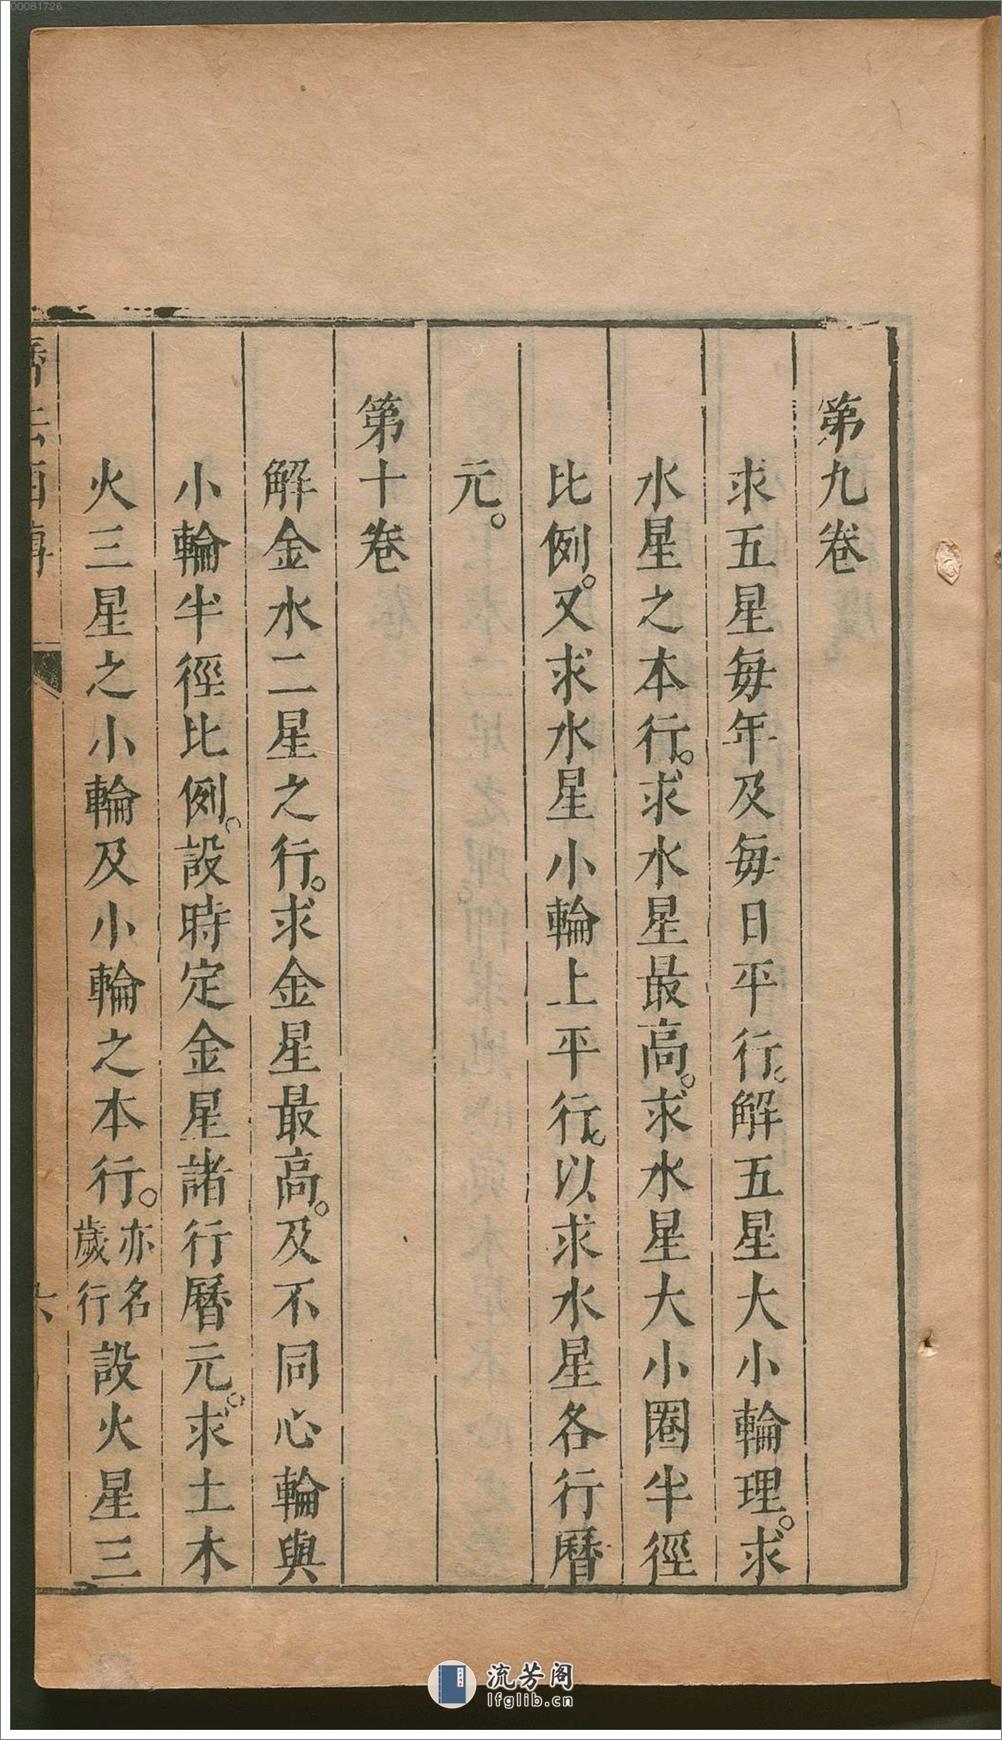 00081726
第九卷
求五星每年及每日平行。解五星大小輪理。求
水星之本行。求水星最高。求水星大小圈半徑
比例。又求水星小輪上平行。以求水星各行曆
元。
第十卷
解金水二星之行。求金星最高。及不同心輪與
小輪半徑比例。設時定金星諸行曆元。求土木
火三星之小輪及小輪之本行。亦名歲行設火星三
六
流芳阁
lfglib.cn